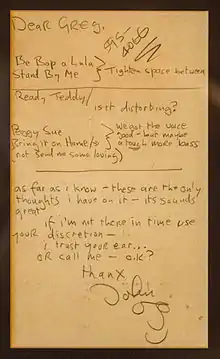 Dear Greg,
595-
4066
Be Bop a Lula } Tighten space between
Stand By Me
Ready Teddy / is it distorbing?
Peggy Sue } we got the voice
Bring it on Home/s good - but maybe
(not Send me some loving) a touch more bass
as far as i know - these are the only
thoughts i have on it - its sounds
great
if i'm not there in time use
your discretion -
i trust your ear...
OR call me - o.k?
thanx
John